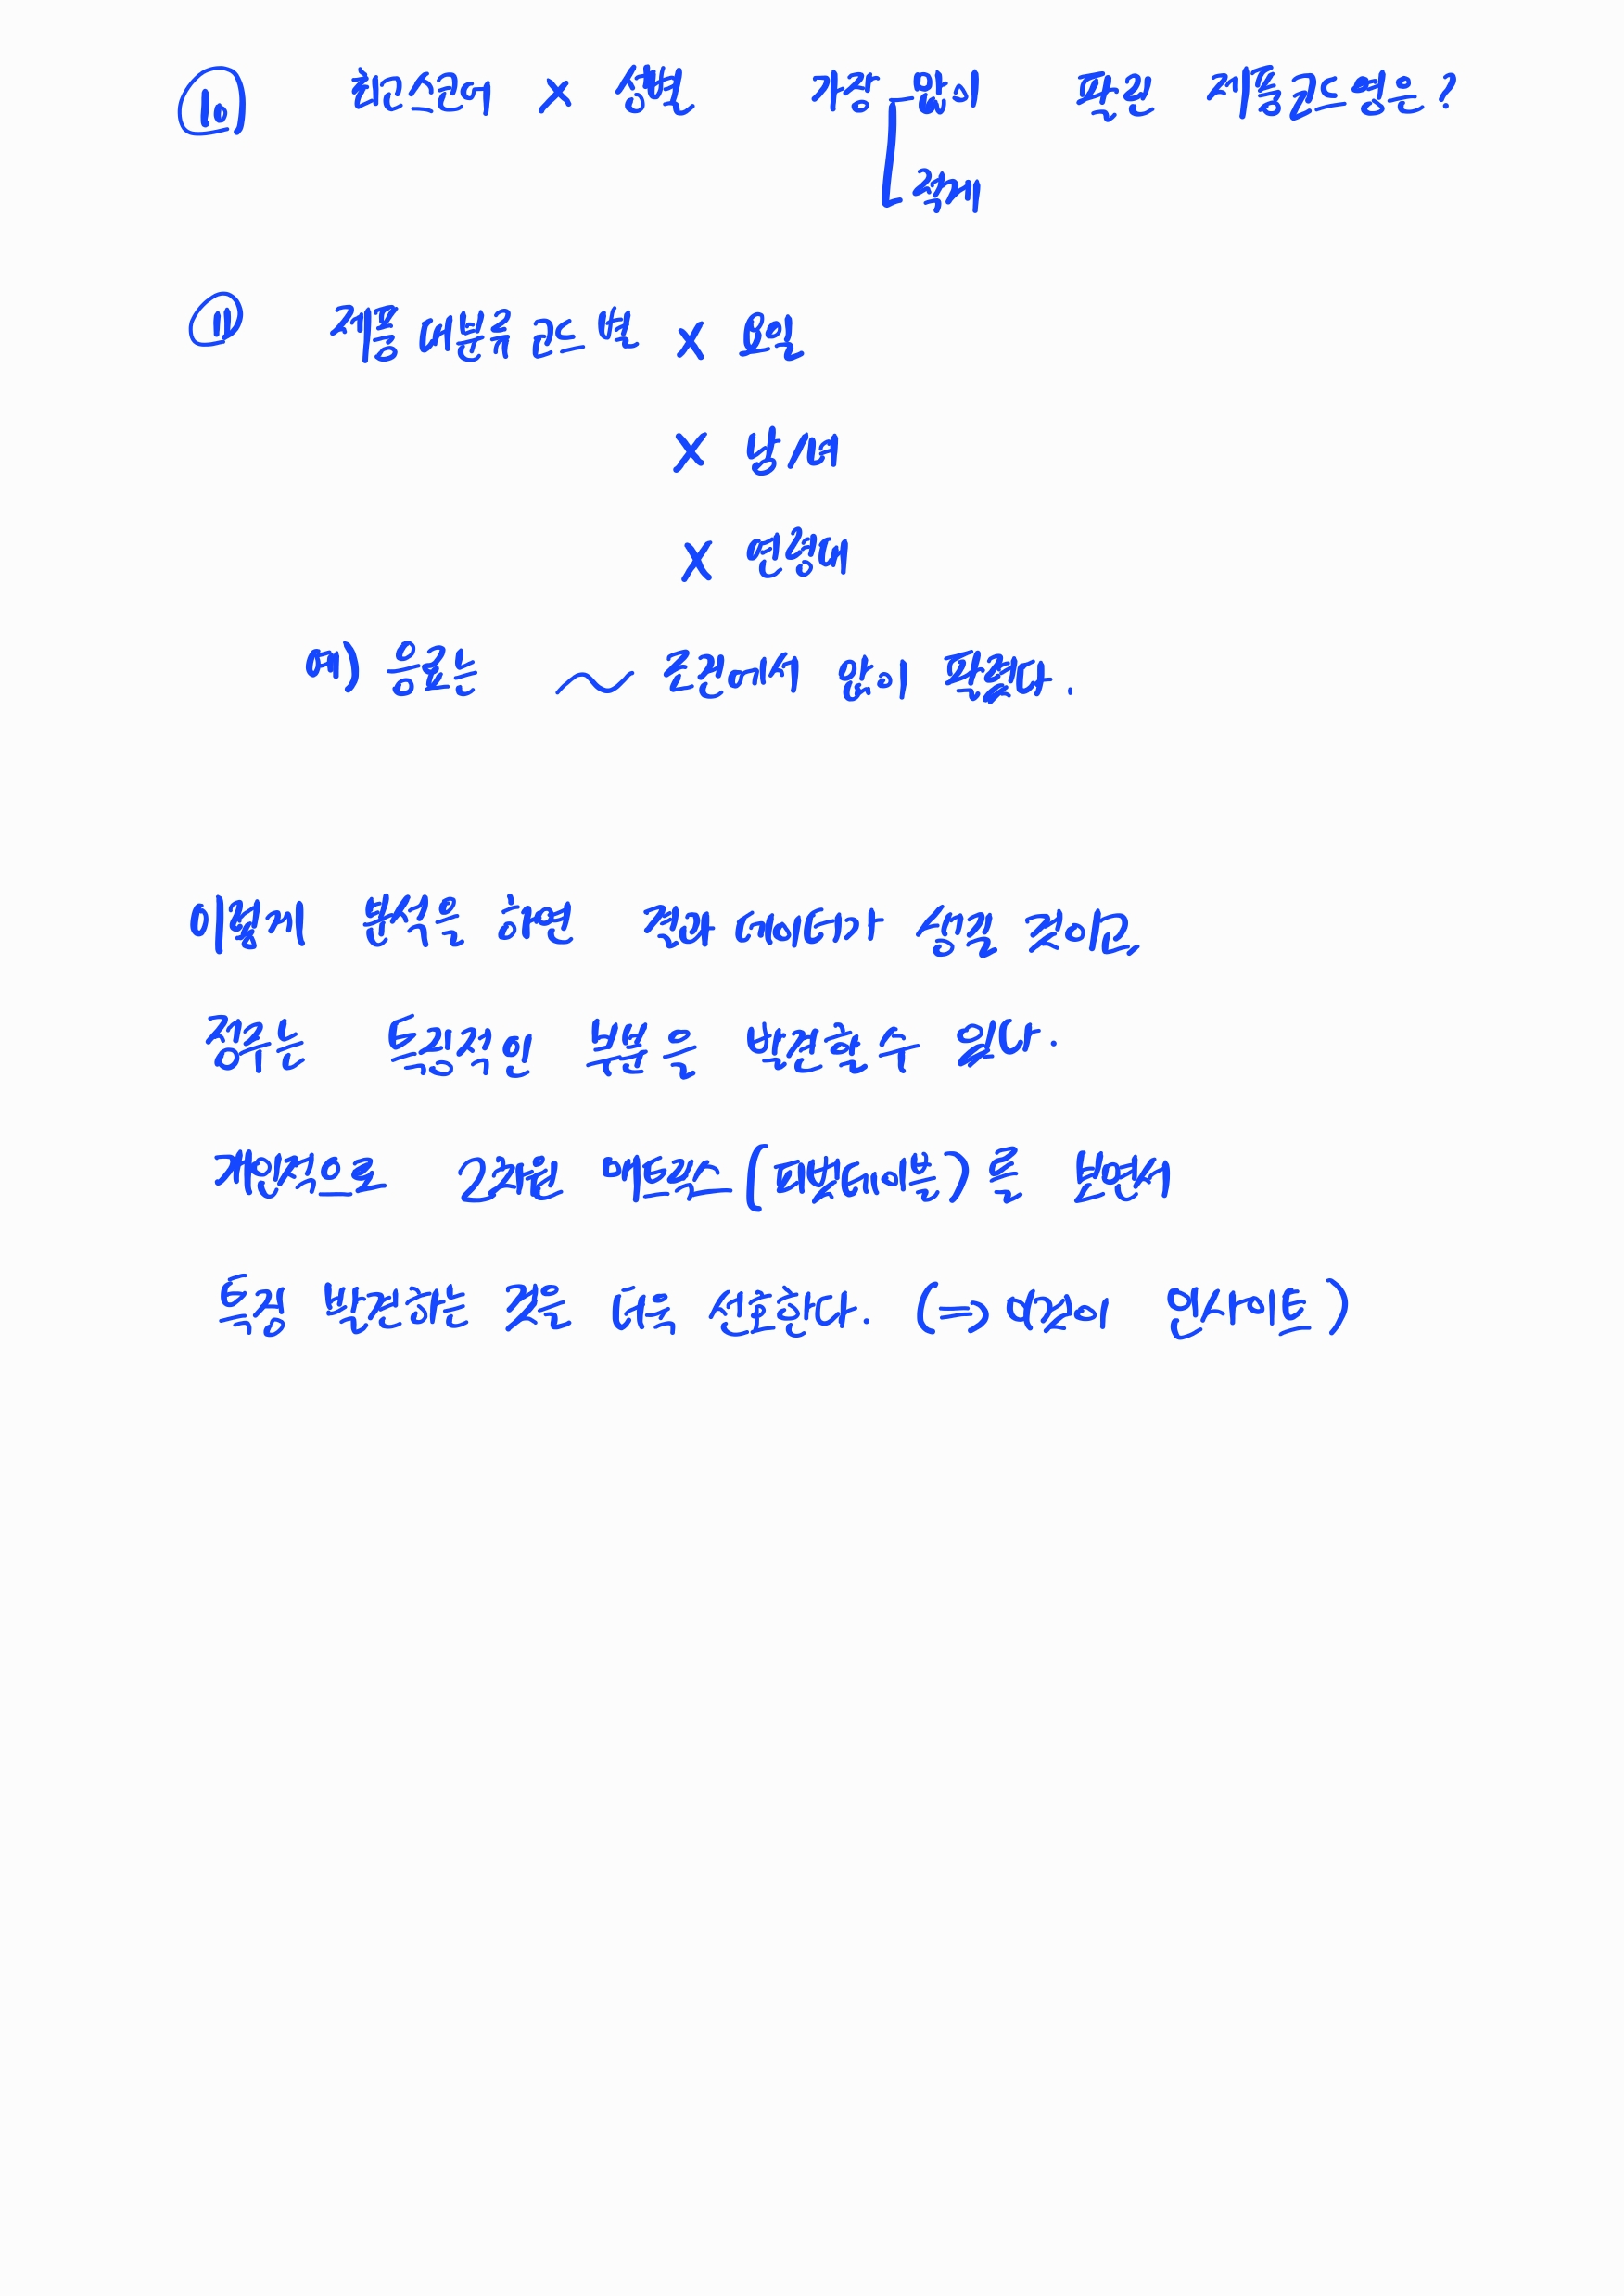 ⑩ 최고 성별 가장 많이 팔린 제품코드명은?
적게
⑪ 제품 대분류 코드별 X 요일
X 남/녀
X 연령대
예) 음료는 ~ 조건에서 많이 팔렸다.
이렇게 분석을 하면 결과 데이터가 생길 것이고,
경우는 특징적인 부분을 발견할 수 있다.
개인적으로 2차원 매트릭스 (피벗테이블)를 보면서
특징 발견하는 것을 더욱 선호한다. (=> 이것이 인사이트)